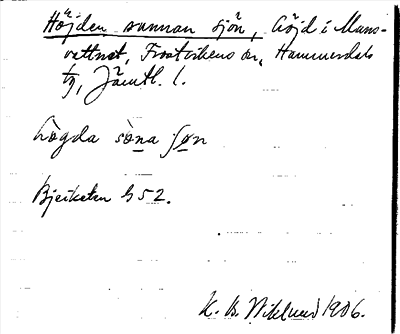 Höjden sunnan sjön, höjd i Mans-
vattnet, Frostvikens sn, Hammerdals
tg, Jämtl. l.
högda sɷ̀na ʃøn
Bjeiketsn h 52.
K. B. Wiklund 1906.